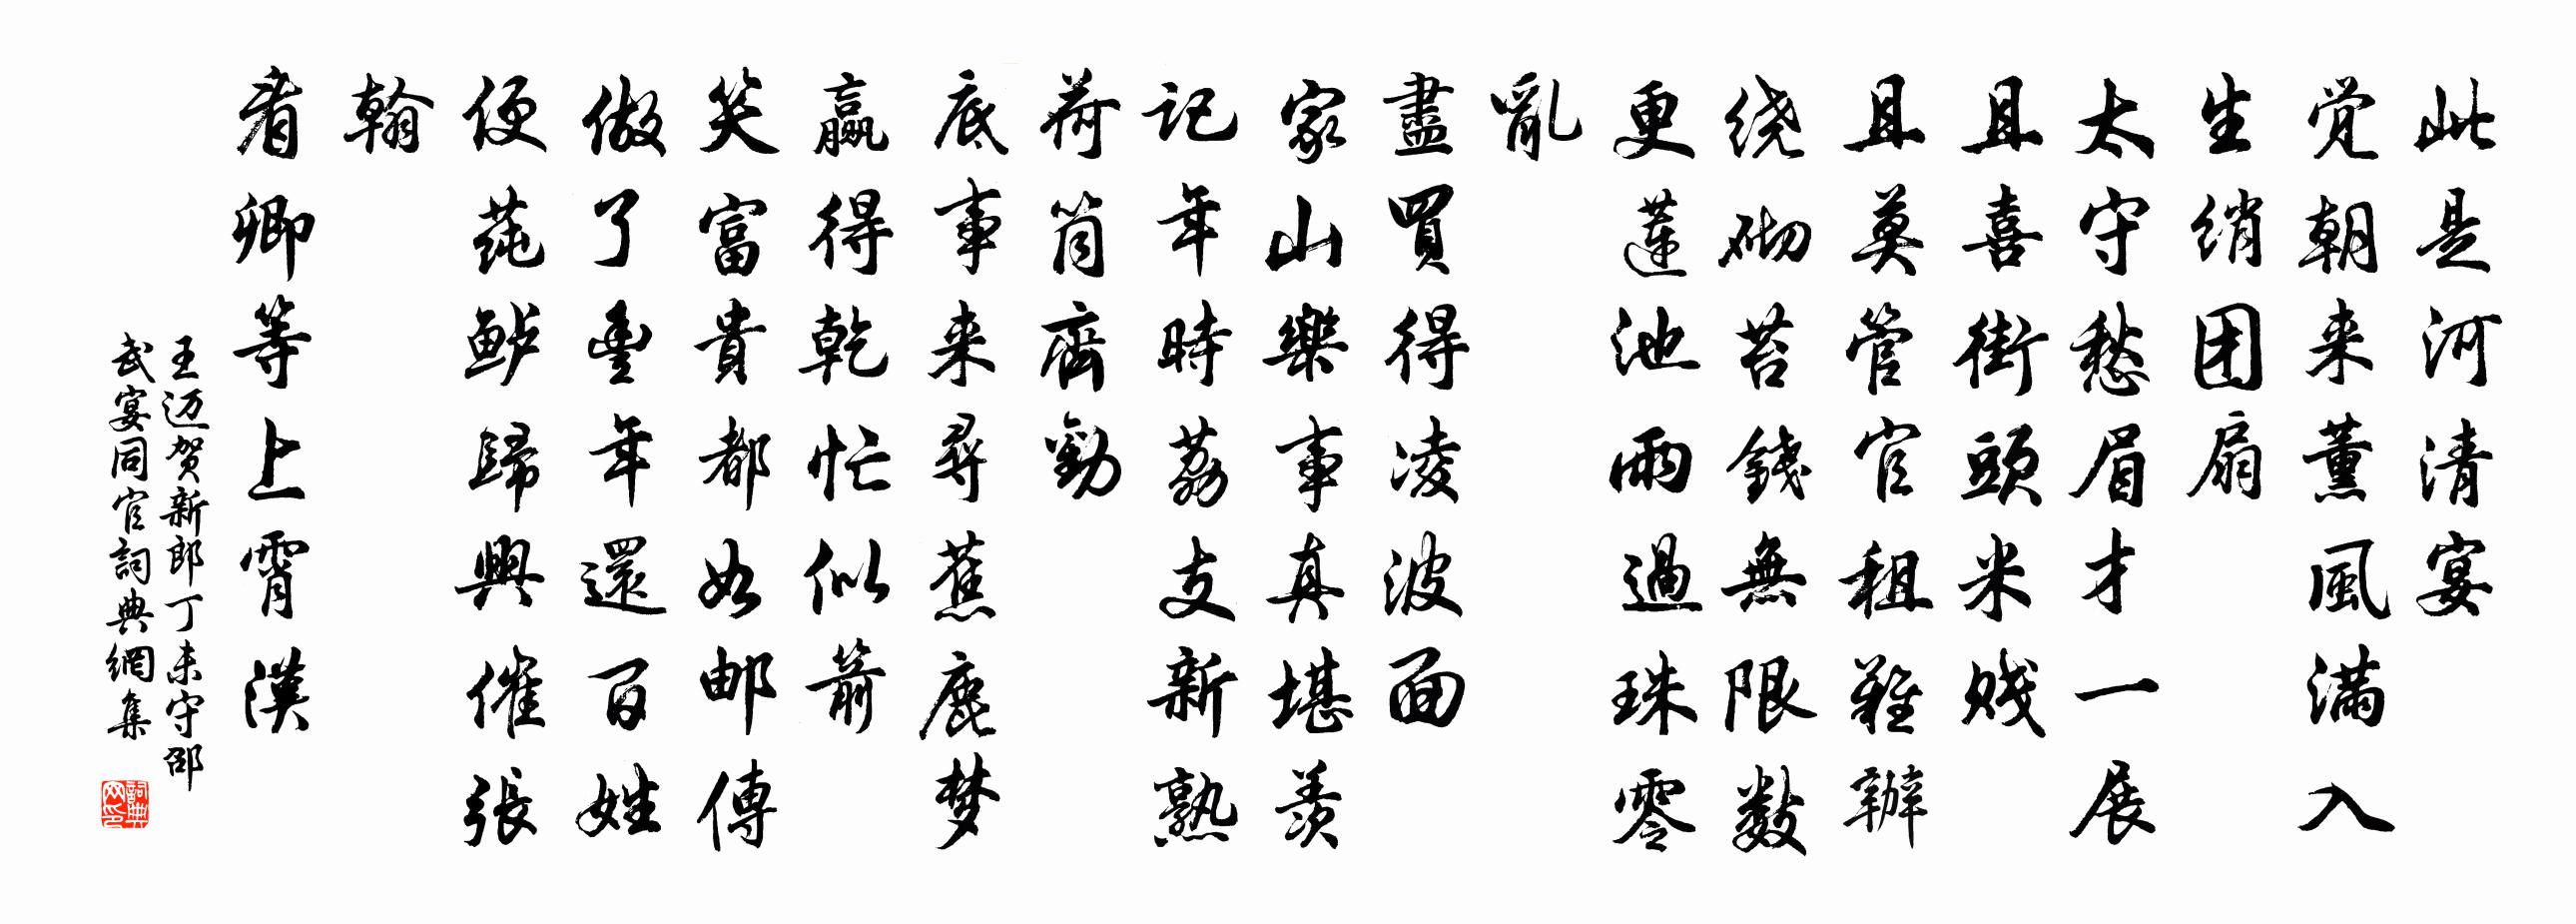 此是河清宴
觉朝来薰風满入
生绡团扇
太守愁眉才一展
且喜街頭米贱
且莫管官租難辦
绕砌苔錢無限数
更蓮池雨過珠零
亂
盡買得凌波面
家山樂事真堪羡
記年時荔支新熟
荷筒齊勸
底事来尋蕉鹿梦
贏得乾忙似箭
笑富貴都如邮傳
做了豐年還百姓
便蒓鲈歸興催張
翰
看卿等上霄漢
王迈贺新郎丁未守邵
武宴同官詞典網集
詞典网印